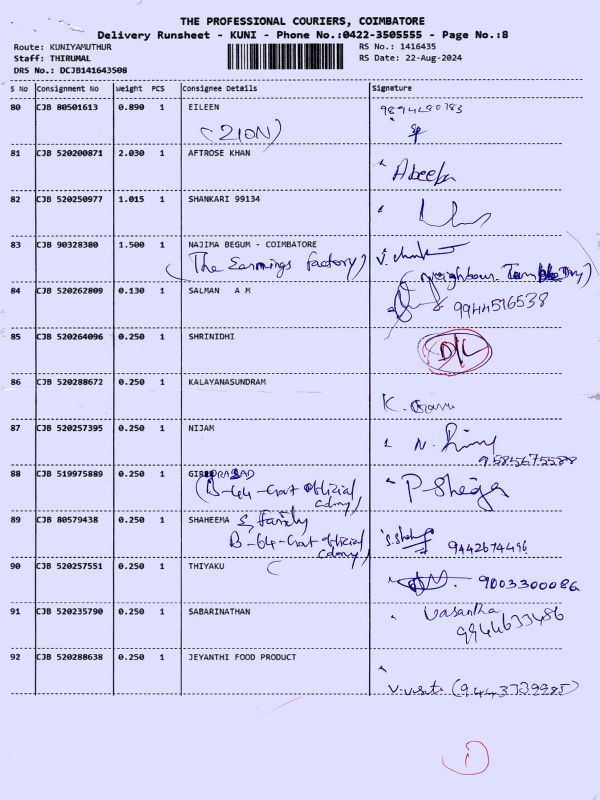 THE PROFESSIONAL COURIERS, COIMBATORE
Delivery Runsheet - KUNI - Phone No.:0422-3505555 - Page No.:8
Route: KUNIYAMUTHUR
Staff: THIRUMAL
DRS No.: DCJB141643508
RS No.: 1416435
RS Date: 22-Aug-2024
S No Consignment No Weight PCS Consignee Details Signature
80 CJB 80501613 0.890 1 EILEEN
(ZION)
81 CJB 520200871 2.030 1 AFTROSE KHAN
82 CJB 520250977 1.015 1 SHANKARI 99134
83 CJB 90328380 1.500 1 NAJIMA BEGUM - COIMBATORE
(The Earnings factory)
84 CJB 520262809 0.130 1 SALMAN A M
(Neighbour
9944516538
85 CJB 520264096 0.250 1 SHRINIDHI D/L
86 CJB 520288672 0.250 1 KALAYANASUNDRAM
87 CJB 520257395 0.250 1 NIJAM
9585675588
88 CJB 519975889 0.250 1
(B-64-Govt Official
89 CJB 80579438 0.250 1 SHAHEEMA & family
B-64-Govt Official
9442674496
90 CJB 520257551 0.250 1 THIYAKU 9003300086
91 CJB 520235790 0.250 1 SABARINATHAN Vasantha
9944633486
92 CJB 520288638 0.250 1 JEYANTHI FOOD PRODUCT
(9443739985)
1